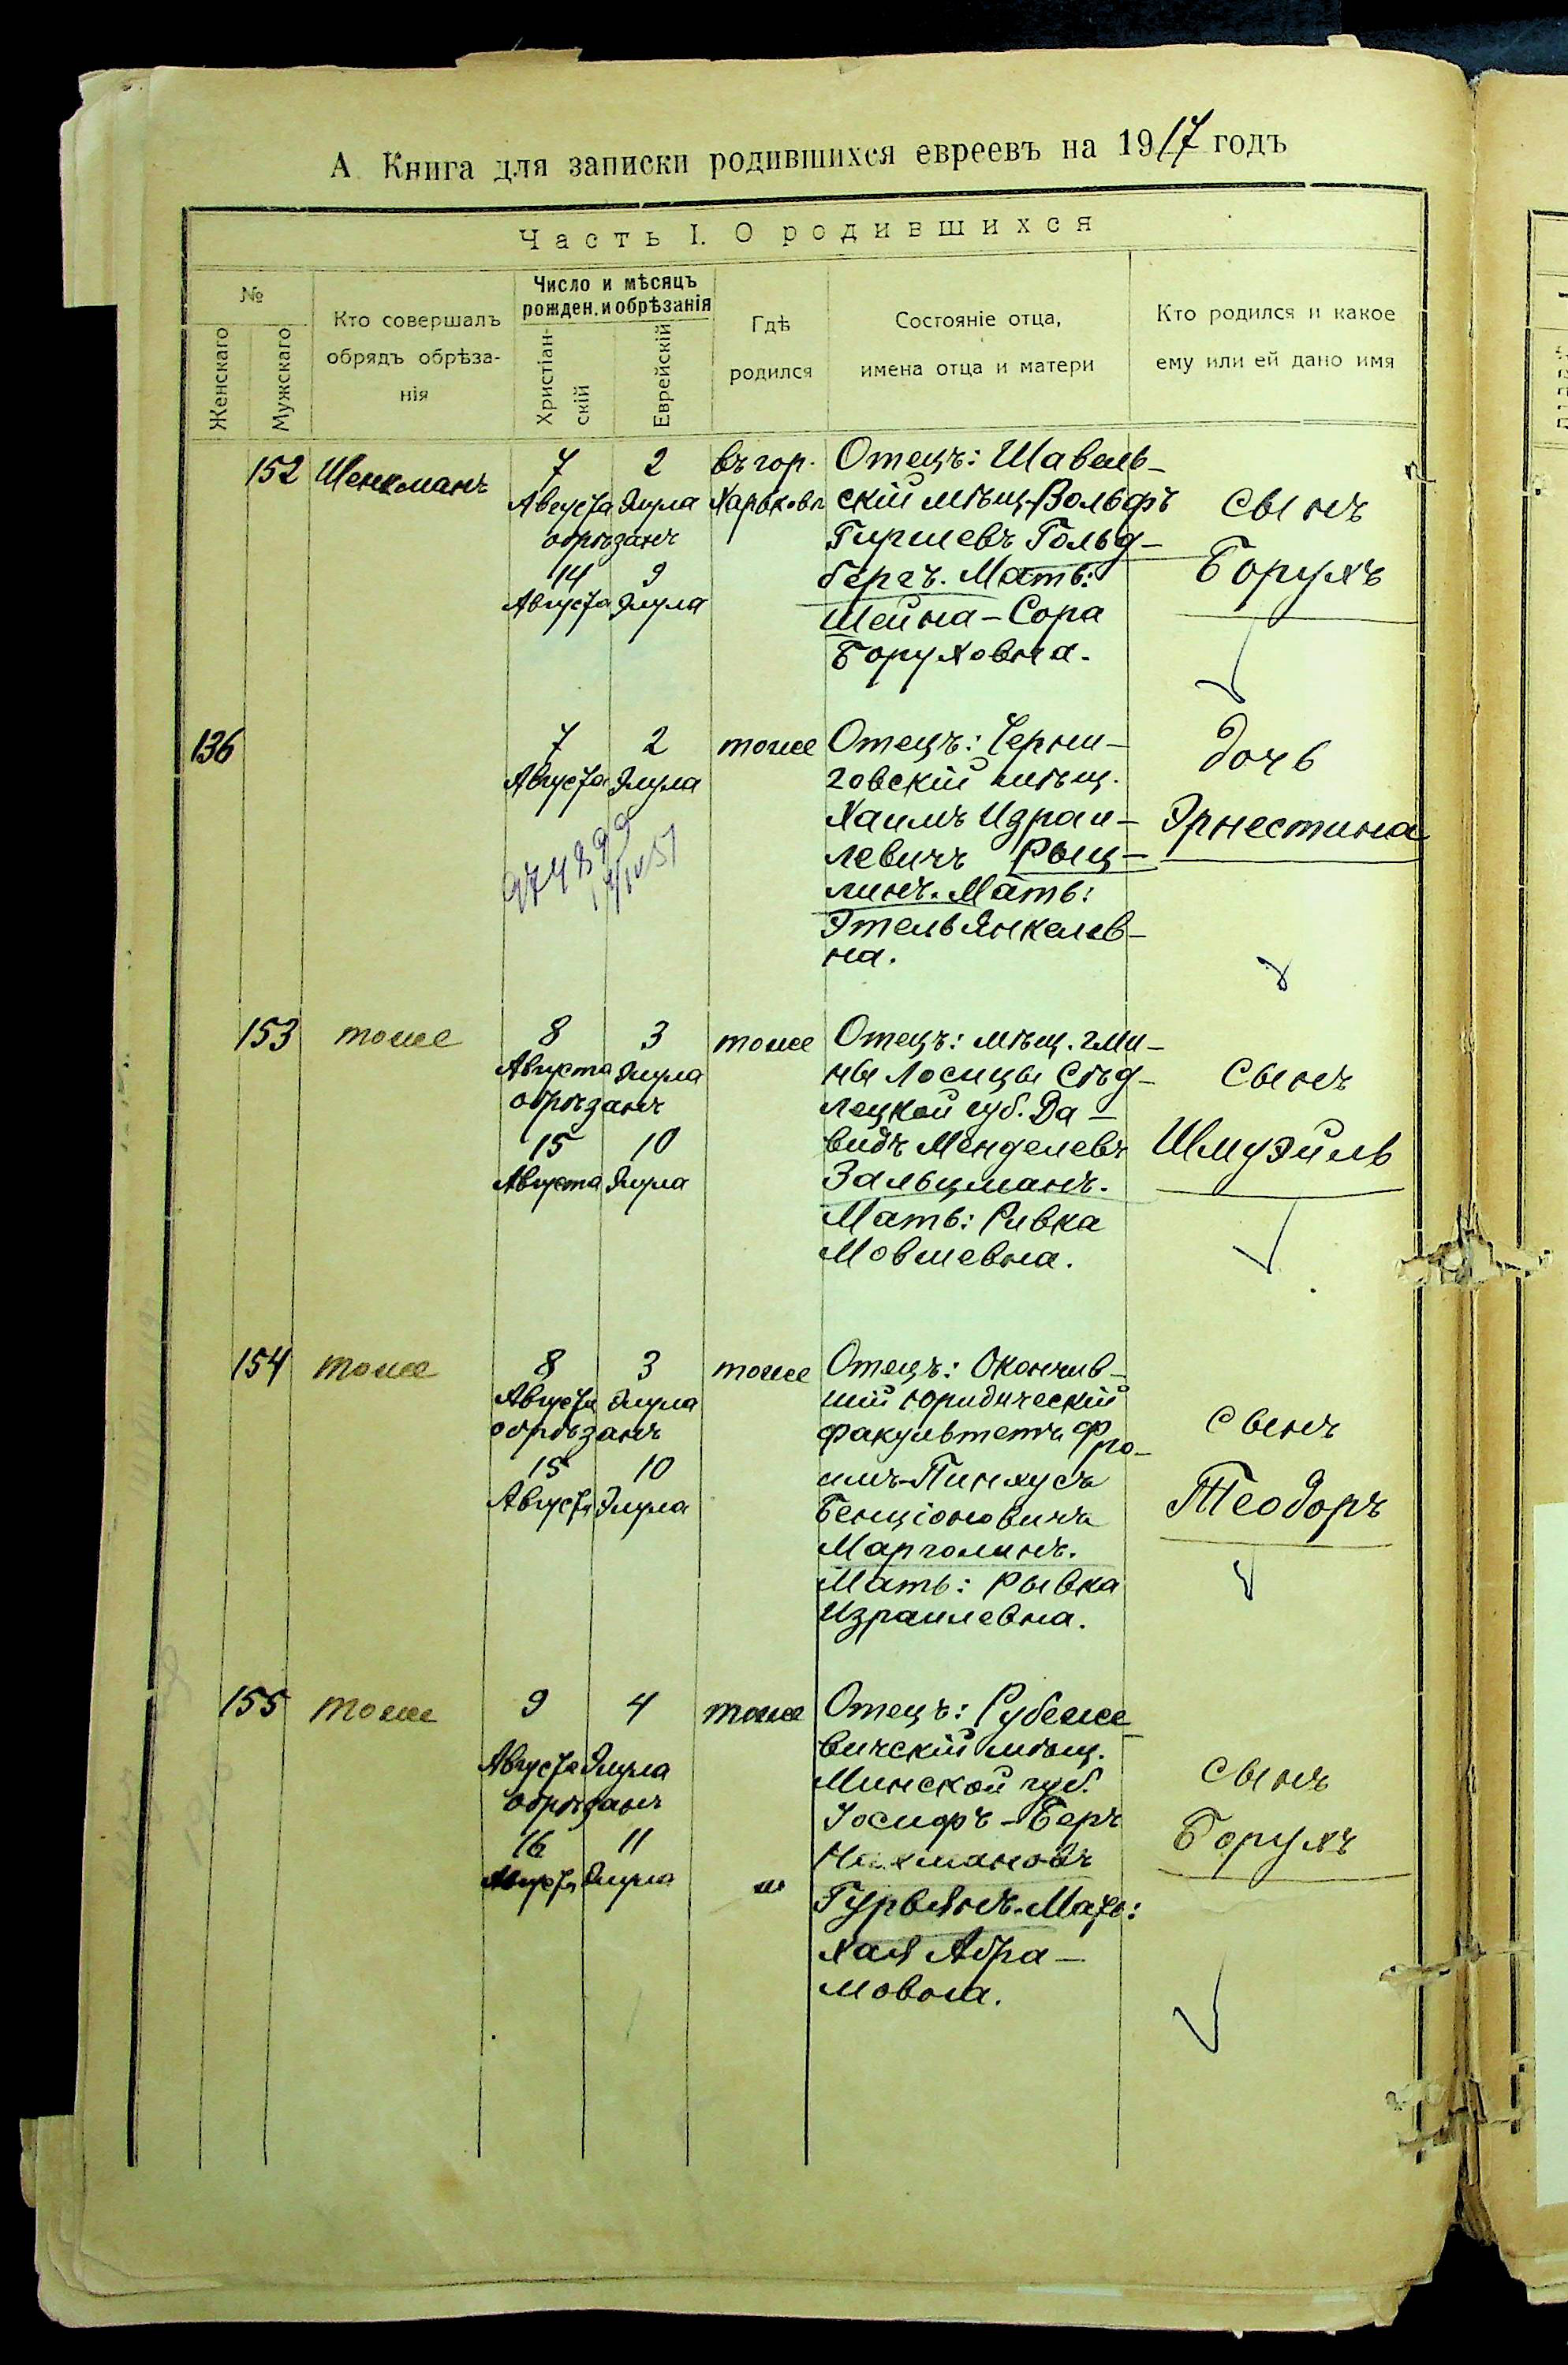 А Книга для записки родившихся евреевъ на 1917 годъ
Часть I. О родившихся
№
Женскаго
Мужскаго
Кто совершалъ
обрядъ обрѣза-
нія
Число и мѣсяцъ
рожден. и обрѣзанія
Христіан-
скій
Еврейскій
Гдѣ
родился
Состояніе отца,
имена отца и матери
Кто родился и какое
ему или ей дано имя
152 Шенкманъ
7 2
Августа Элула
обрѣзанъ
14 9
Августа Элула
въ гор.
Харьковѣ
Отецъ: Шавель-
скій мѣщ. Вольфъ
Гиршевъ Гольд-
бергъ. Мать:
Шейна-Сора
Боруховна.
сынъ
Борухъ
136
7 2
Августа Элула
тоже
Отецъ: Черни-
говскій мѣщ.
Хаимъ Израи-
левичъ Рыц-
линъ. Мать:
Этель Янкелев-
на.
дочь
Эрнестина
153 тоже
8 3
Августа Элула
обрѣзанъ
15 10
Августа Элула
тоже
Отецъ: мѣщ. гми-
ны Лосицы Сѣд-
лецкой губ. Да-
видъ Менделевъ
Зальцманъ.
Мать: Ривка
Мовшевна.
сынъ
Шмуэйль
154 тоже
8 3
Августа Элула
обрѣзанъ
15 10
Августа Элула
тоже
Отецъ: Окончив-
шій юридическій
факультетъ Фро-
имъ-Пинхусъ
Бенціоновичъ
Марголинъ.
Мать: Рывка
Израилевна.
сынъ
Теодоръ
155 тоже
9 4
Августа Элула
обрѣзанъ
16 11
Августа Элула
тоже
Отецъ: Рубеже-
вичскій мѣщ.
Минской губ.
Іосифъ-Беръ
Нахмановъ
Гурвичъ. Мать:
Хая Абра-
мовна.
сынъ
Борухъ